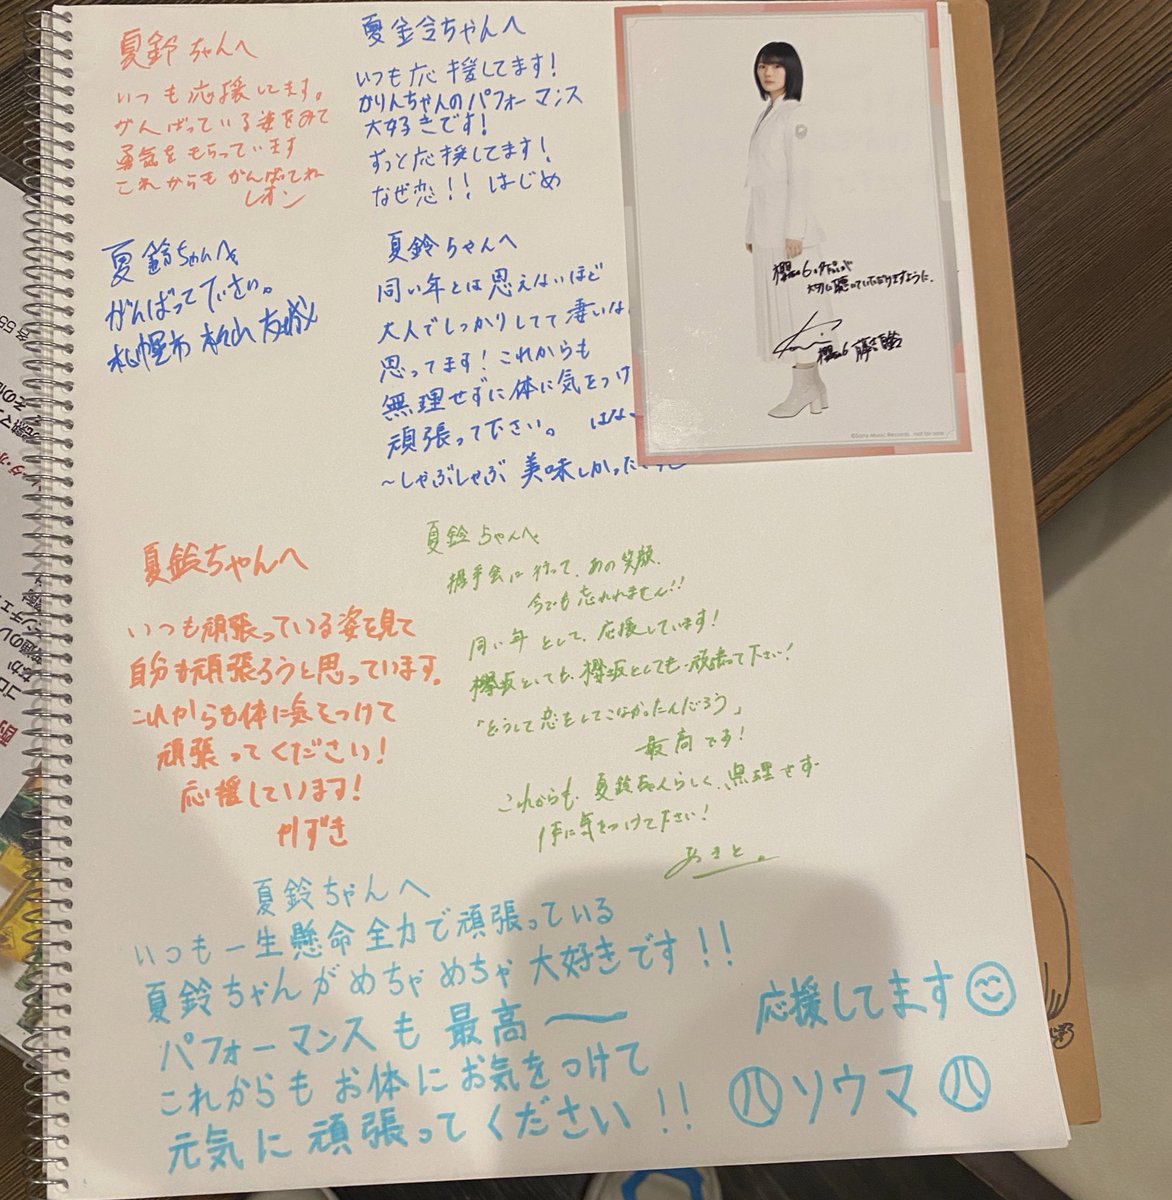 夏鈴ちゃんへ
いつも応援してます。
がんばっている姿をみて
勇気をもらっています
これからもがんばてね
レオン
夏鈴ちゃんへ
いつも応援してます！
かりんちゃんのパフォーマンス
大好きです！
ずっと応援してます！
なぜ恋！！ はじめ
夏鈴ちゃんへ
がんばって下さい。
札幌市
夏鈴ちゃんへ
同い年とは思えないほど
大人でしっかりしてて凄いな
思ってます！これからも
無理せずに体に気をつけ
頑張って下さい。
〜しゃぶしゃぶ 美味しかった
櫻坂46の
大切に聴いていただけますように。
櫻坂46 藤吉夏鈴
©Sony Music Records not for sale
夏鈴ちゃんへ
いつも頑張っている姿を見て
自分も頑張ろうと思っています。
これからも体に気をつけて
頑張ってください！
応援しています！
かずき
夏鈴ちゃんへ
握手会に行って、あの笑顔、
今でも忘れれません！！
同い年として、応援しています！
欅坂としても、櫻坂としても頑張って下さい！
「どうして恋をしてこなかったんだろう」
最高です！
これからも、夏鈴ちゃんらしく、無理せず
体に気をつけて下さい！
あきと。
夏鈴ちゃんへ
いつも一生懸命全力で頑張っている
夏鈴ちゃんがめちゃめちゃ大好きです！！
パフォーマンスも最高〜
これからもお体にお気をつけて
元気に頑張ってください！！
応援してます
ソウマ